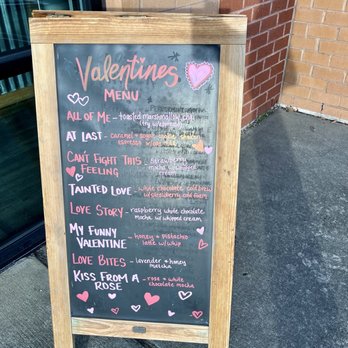 Valentines
MENU
ALL OF ME - toasted marshmallow chai
(try w/espresso)
AT LAST - caramel & sugar cookie
espresso w/oat milk
CAN'T FIGHT THIS - strawberry
FEELING mocha w/whipped
cream
TAINTED LOVE - white chocolate cold brew
w/strawberry cold foam
LOVE STORY - raspberry white chocolate
mocha w/whipped cream
MY FUNNY - honey & pistachio
VALENTINE latte w/whip
LOVE BITES - lavender & honey
matcha
KISS FROM A - rose & white
ROSE chocolate mocha